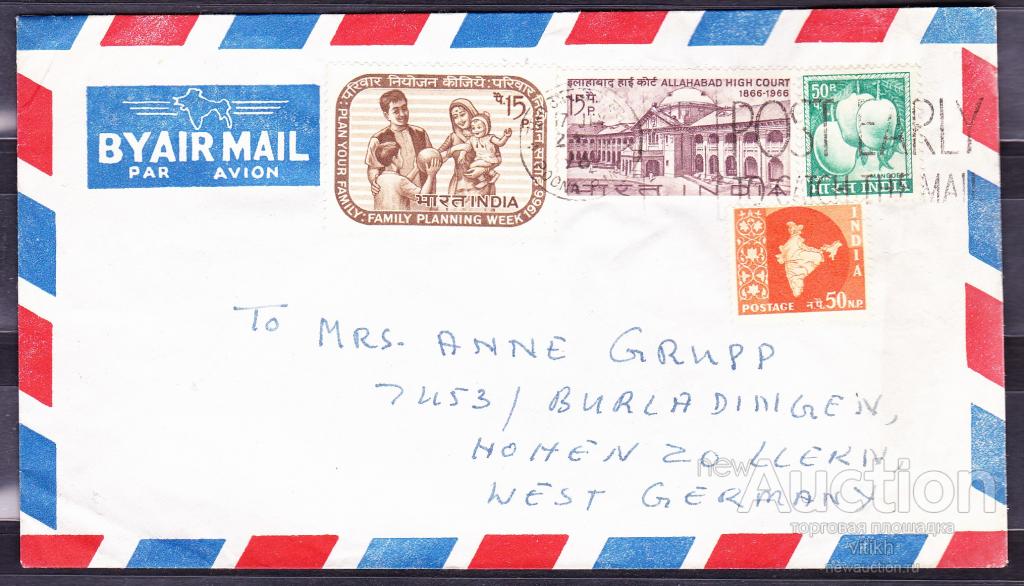 BY AIR MAIL
PAR AVION
परिवार नियोजन कीजिये: परिवार नियोजन सप्ताह
PLAN YOUR FAMILY: FAMILY PLANNING WEEK 1966
पै. 15 P.
भारत INDIA
इलाहाबाद हाई कोर्ट ALLAHABAD HIGH COURT
1866-1966
15 पै.
P.
भारत INDIA
50P.
MANGOES
भारत INDIA
POST EARLY
INDIA
POSTAGE न.पै. 50 N.P.
To MRS. ANNE GRUPP
7453/ BURLADINGEN,
HOHENZOLLERN
WEST GERMANY
newAuction
торговая площадка
vitikh
newauction.ru